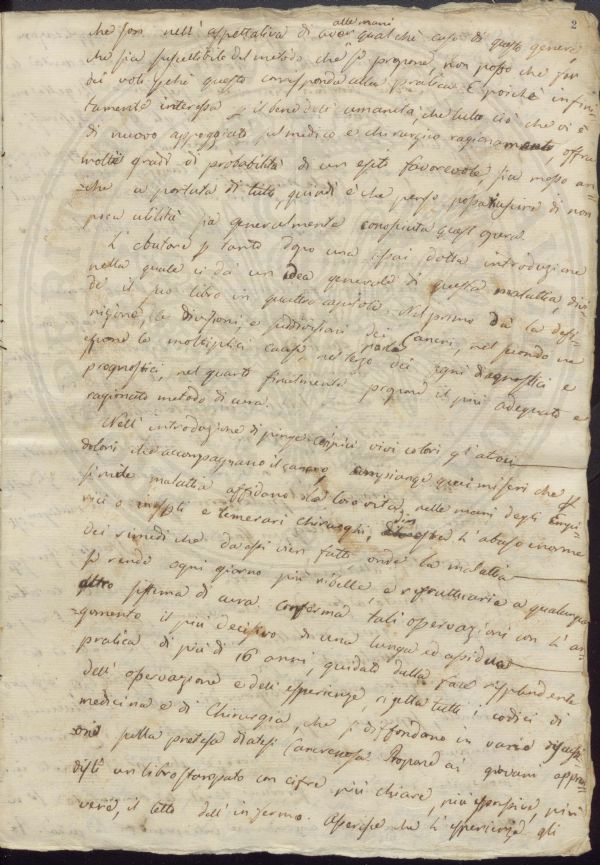 2
che son nell' aspettativa di aver alle mani qualche caso di questo genere
che sia suscettibile del metodo che si propone, non posso che far
dei voti perché questo corrisponda alla pratica. E poiché infini-
tamente interessa il bene dell' umanità, che tutto ciò che vi è
di nuovo appoggiato sul medico e chirurgico ragionamento, offra
molti gradi di probabilità di un esito favorevole, sia messo an-
-che a portata di tutti, quindi è che penso possa riuscire di non
poca utilità sia generalmente conosciuta quest' opera.
L' Autore tanto dopo una assai dotta introduzione
nella quale ci dà un idea generale di questa malattia, divi-
de il suo libro in quattro capitoli. Nel primo dà la defi-
nizione, le divisioni, e suddivisioni dei Cancri, nel secondo ne
espone le molteplici cause, nel terzo parla dei segni diagnostici e
prognostici, nel quarto finalmente propone il più adequato e
ragionato metodo di cura.
Nell' introduzione dipinge coi più vivi colori gl' atroci
dolori che accompagnano il cancro, compiange quei miseri che
simile malattia affidano la loro vita nelle mani degli Empi-
rici o inesperti e temerari chirurghi, l' abuso enorme
dei rimedi che da essi vien fatto onde la malattia
si rende ogni giorno più ribelle, e refrattaria a qualunque
altro sistema di cura. Conferma tali osservazioni con l' ar-
-gomento il più decisivo di una lunga ed assidua
pratica di più di 16 anni, guidato dalla face risplendente
dell' osservazione e dell' esperienza, rigetta tutti i codici di
medicina e di Chirurgia, che si diffondono in varie discussi-
-oni sulla pretesa diatesi Cancerosa. Propone ai giovani appren-
disti un libro stampato con cifre più chiare, più espressive, più
vere, il letto dell' infermo. Asserisce che l' esperienza gli